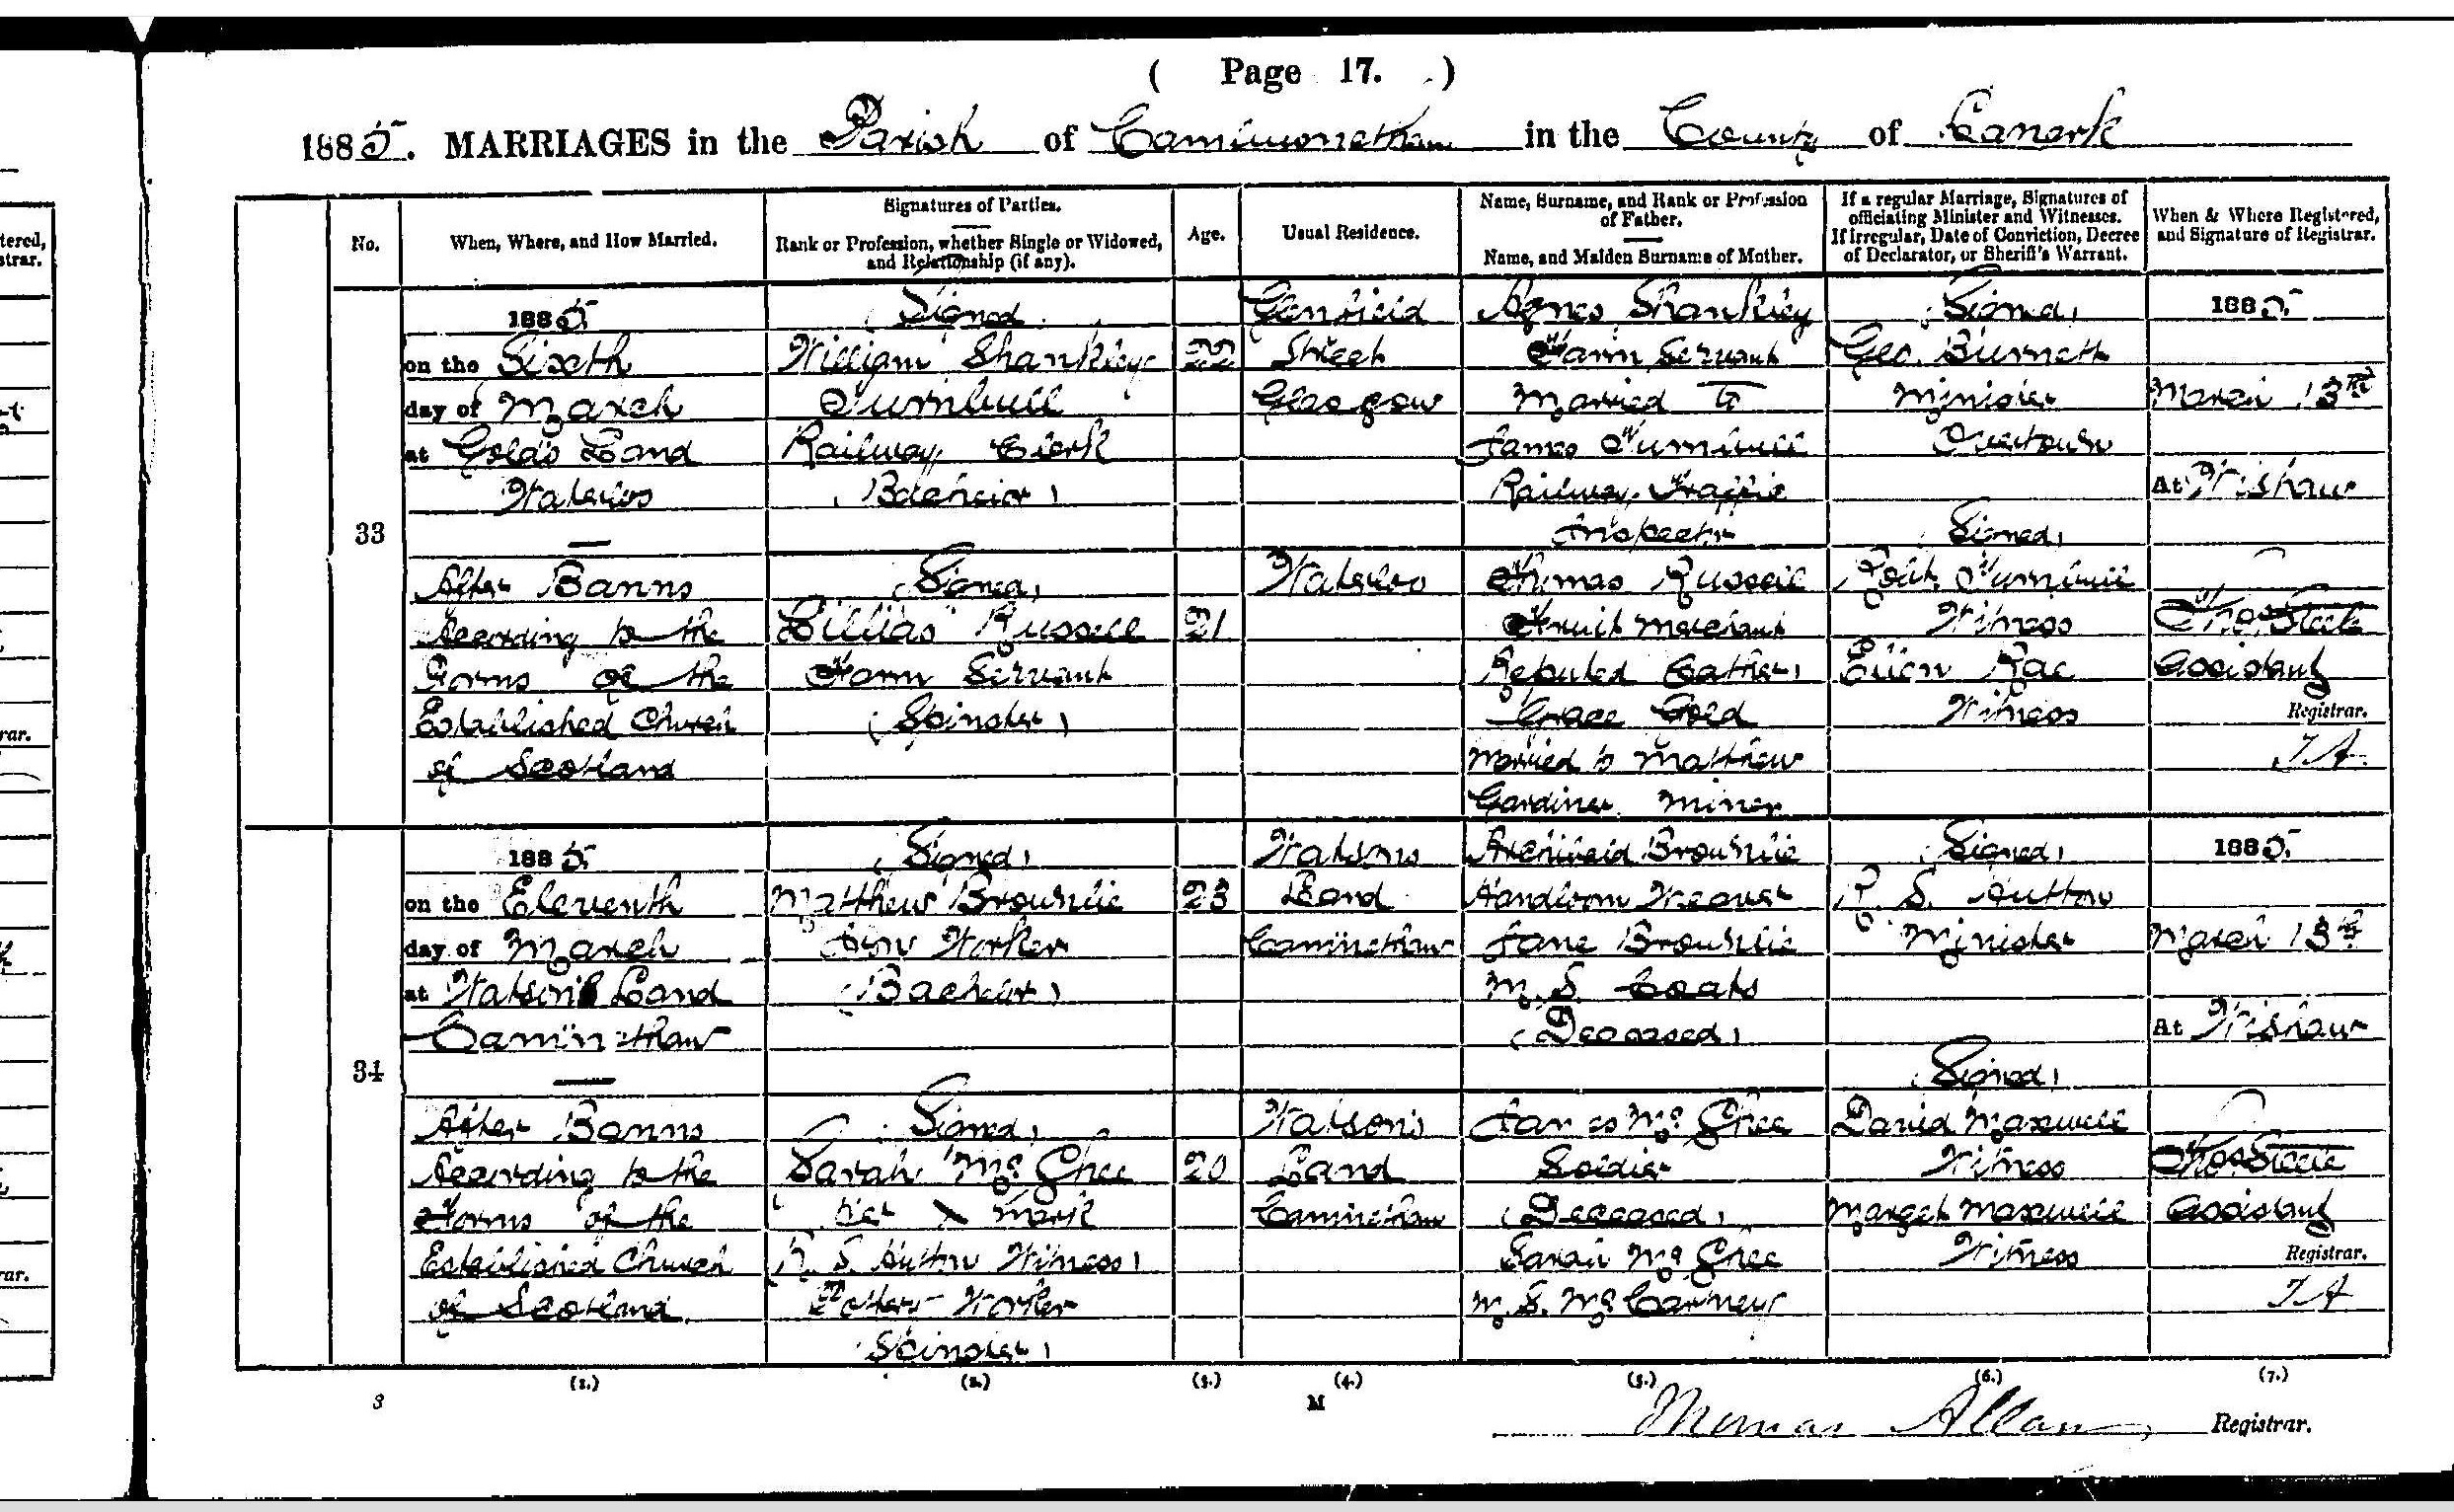 ( Page 17. )
1885. MARRIAGES in the Parish of Cambusnethan in the County of Lanark
No.
When, Where, and How Married.
Signatures of Parties.
Rank or Profession, whether Single or Widowed,
and Relationship (if any).
Age.
Usual Residence.
Name, Surname, and Rank or Profession
of Father.
Name, and Maiden Surname of Mother.
If a regular Marriage, Signatures of
officiating Minister and Witnesses.
If Irregular, Date of Conviction, Decree
of Declarator, or Sheriff's Warrant.
When & Where Registered,
and Signature of Registrar.
33
1885
on the Sixth
day of March
at Gold's Land
Waterloo
After Banns
According to the
Forms of the
Established Church
of Scotland
(Signed)
William Shankley
Turnbull
Railway Clerk
(Bachelor)
(Signed)
Lillias Russell
Farm Servant
(Spinster)
22
21
Glenfield
Street
Glasgow
Waterloo
Agnes Shankley
Farm Servant
Married to
James Turnbull
Railway Traffic
Inspector
Thomas Russell
Fruit Merchant
Reputed Father)
Grace Gold
Married to Matthew
Gardiner Miner
(Signed)
Geo. Burnett
Minister
Overtown
(Signed)
Robt. Turnbull
Witness
Ellen Rae
Witness
1885.
March 13th
At Wishaw
Thos. Steele
Assistant
Registrar.
T A.
34
1885.
on the Eleventh
day of March
at Watson's Land
Cambnethan
After Banns
According to the
Forms of the
Established Church
of Scotland.
(Signed)
Matthew Brownlie
Iron Worker
(Bachelor)
(Signed)
Sarah McGhee
her X mark
R. S. Hutton Witness)
Pottery Worker
(Spinster)
23
20
Watsons
Land
Cambnethan
Watson's
Land
Cambnethan
Archibald Brownlie
Handloom Weaver
Jane Brownlie
M. S. Coats
(Deceased)
James McGhee
Soldier
(Deceased)
Sarah McGhee
M. S. McCarney
(Signed)
R. S. Hutton
Minister
(Signed)
David Maxwell
Witness
Margat Maxwell
Witness
1885.
March 13th
At Wishaw
Thos. Steele
Assistant
Registrar.
T A
(1.) (2.) (3.) (4.) (5.) (6.) (7.)
3
M
Thomas Allan, Registrar.
tered,
strar.
rar.
rar.